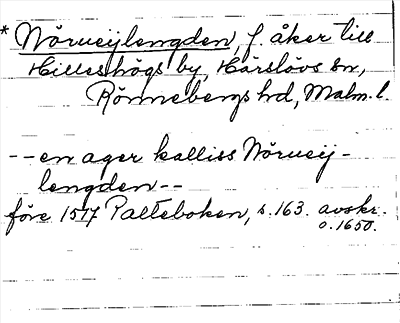 * Nörueijlengden, f. åker till
Hilleshögs by, Härslövs sn,
Rönnebergs hd, Malm. l.
-- en ager kalliss Nörueij-
lengden --
före 1517 Palteboken, s. 163. avskr.
o. 1650.